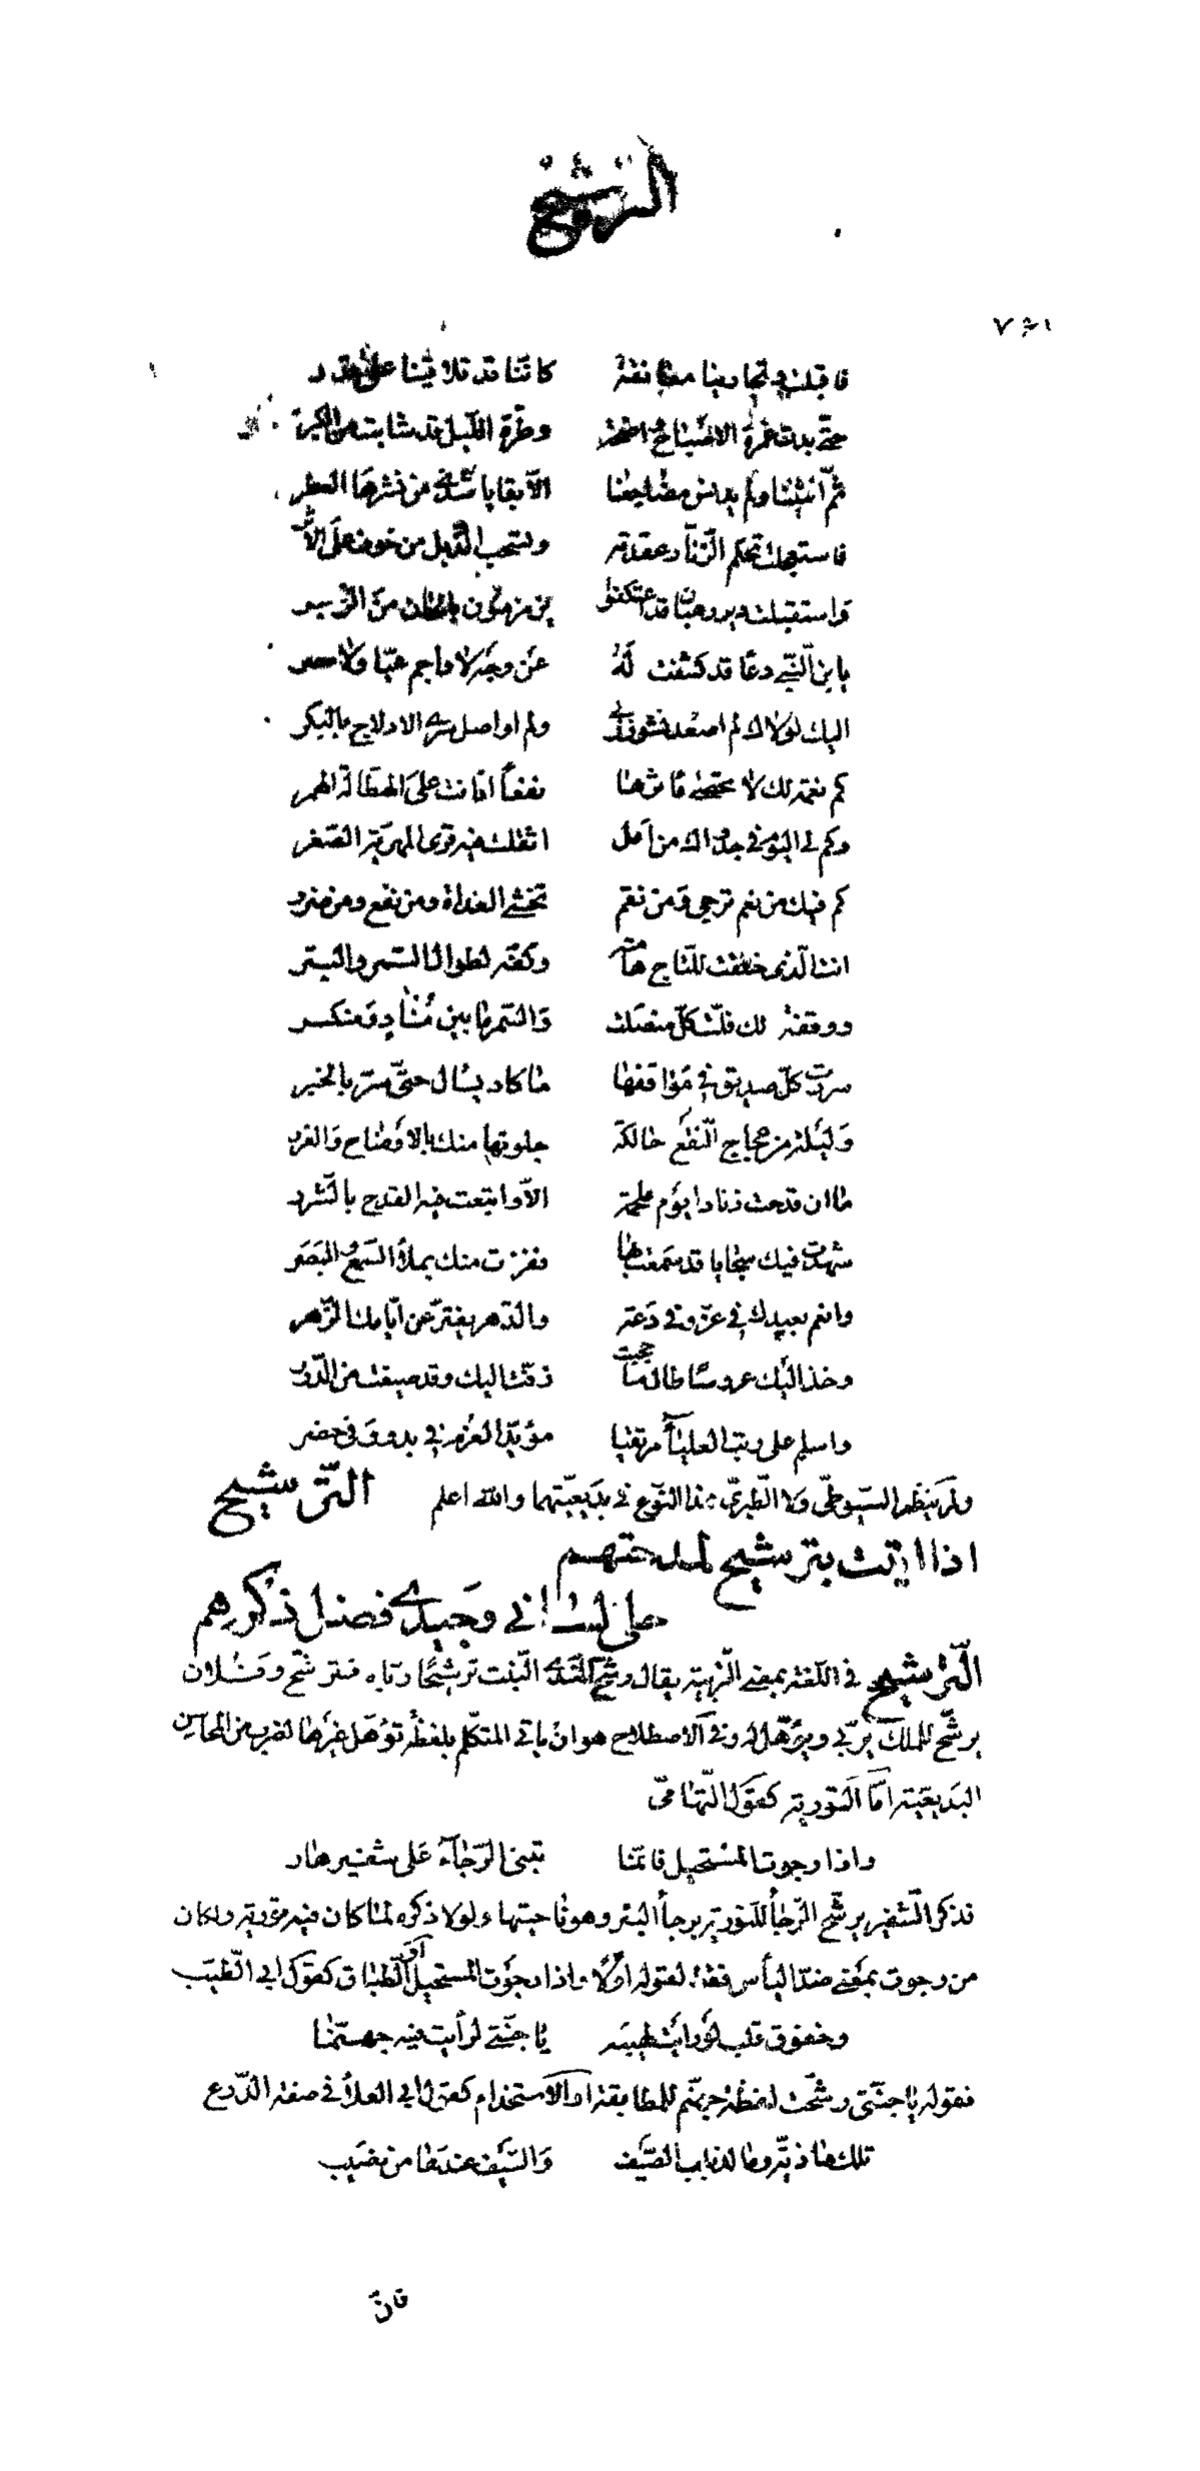 الترشيح
فاقبلت وتجارينا معانقة كاننا قد تلاقينا على قدر
حتى بدت غرة الاصباح واضحة وطرة الليل قد شابت من الكبر
ثم انثنينا ولم يدنس مضاجعنا الا بقايا شذى من نشرها العطر
ولم لتحكم الزنار عقدته وتسحب الذيل من خوف على الاثر
واستقبلت دير رهبان قد اعتكفوا من الزبر
يا ابن النبي دعا قد كشفت له عن وجه لا واجم عيا ولا حصر
اليك لولاك لم اصعد نشوز ولم اواصل سرى الادلاج بالبكر
كم نعمة لك لا تحصى مآثرها نفعا اقامت على الهطالة الهمر
وكم لي اليوم في جدواك من امل اثقلت فيه قوى المهرية الصعر
كم فيك من نعم ترجى ومن نقم تخشى الغداة ومن نفع ومن ضرر
انت الذي خلقت للتاج هامته وكفه لطوال السمر والبتر
ووقفة لك فلت كل منصلت والسمر ما بين منآد ومنكسر
سرت كل صديق في مواقفها ما كاد يسأل حتى سر بالخبر
وليلة من عجاج النقع حالكة جلوتها منك بالاوضاح والغرر
ما ان قدحت زنادا يوم ملحمة الا واتبعت فيه القدح بالشرر
شهدت فيك سجايا قد سمعت بها ففزت منك بملأ السمع والبصر
وانعم بعيدك في عز وفي دعة والدهر يفتر عن ايامك الزهر
وخذ اليك عروسا طالما حجبت زفت اليك وقد صيغت من الدرر
واسلم على رتب العلياء مرتقيا مؤيد العزم في بدو وفي حضر
ولم ينظم السيوطي ولا الطبري هذا النوع في بديعيتهما والله اعلم الترشيح
اذا اتيت بترشيح لمدحتهم
حلى لساني وجيدي فضل ذكرهم
الترشيح في اللغة بمعنى التربية يقال رشح الندى النبت ترشيحا رباه فترشح وفلان
يرشح للملك يربى ويؤهل له وفي الاصطلاح هو ان ياتي المتكلم بلفظة تؤهل غيرها لضرب من المحاسن
البديعية اما التورية كقول التهامي
واذا رجوت المستحيل فانما تبني الرجاء على شفير هار
فذكر الشفير يرشح الرجاء للتورية برجأ البئر وهو ناحيتها ولولا ذكره لما كان فيه تورية ولكان
من رجوت بمعنى ضد اليأس فقط لقوله اولا واذا رجوت المستحيل او الطباق كقول ابي الطيب
وخفوق قلب لو رايت لهيبه يا جنتي لرأيت فيه جهنما
فقوله يا جنتي رشحت لفظة جهنم للمطابقة او الاستخدام كقول ابي العلاء في صفة الدرع
تلك ماذية وما لذباب الصيف والسيف عندها من نصيب